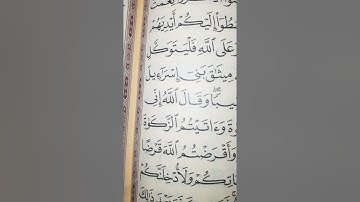 نِعْمَتَ
يَبْسُطُوٓا۟ إِلَيْكُمْ أَيْدِيَهُمْ
وَعَلَى ٱللَّهِ فَلْيَتَوَكَّلِ
مِيثَٰقَ بَنِىٓ إِسْرَٰٓءِيلَ
نَقِيبًا ۖ وَقَالَ ٱللَّهُ إِنِّى
وَءَاتَيْتُمُ ٱلزَّكَوٰةَ
وَأَقْرَضْتُمُ ٱللَّهَ قَرْضًا
وَلَأُدْخِلَنَّكُمْ
ذَٰلِكَ